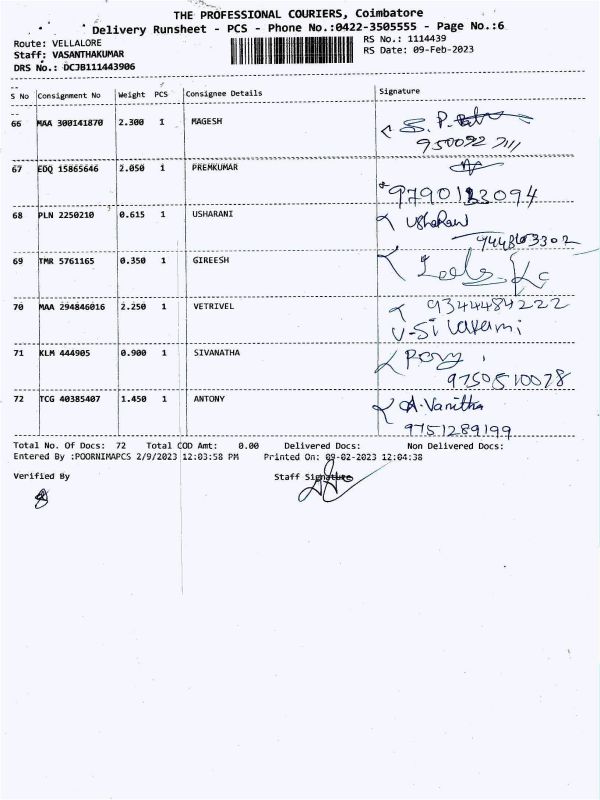 THE PROFESSIONAL COURIERS, Coimbatore
Delivery Runsheet - PCS - Phone No.:0422-3505555 - Page No.:6
Route: VELLALORE
RS No.: 1114439
Staff: VASANTHAKUMAR
RS Date: 09-Feb-2023
DRS No.: DCJB111443906
S No Consignment No Weight PCS Consignee Details Signature
66 MAA 300141870 2.300 1 MAGESH S. P.
67 EDQ 15865646 2.050 1 PREMKUMAR
9790133094
68 PLN 2250210 0.615 1 USHARANI UshaRani
69 TMR 5761165 0.350 1 GIREESH
70 MAA 294846016 2.250 1 VETRIVEL 9344484222
71 KLM 444905 0.900 1 SIVANATHA
9750510078
72 TCG 40385407 1.450 1 ANTONY A. Vanitha
9751289199
Total No. Of Docs: 72 Total COD Amt: 0.00 Delivered Docs: Non Delivered Docs:
Entered By :POORNIMAPCS 2/9/2023 12:03:58 PM Printed On: 09-02-2023 12:04:38
Verified By Staff Signature